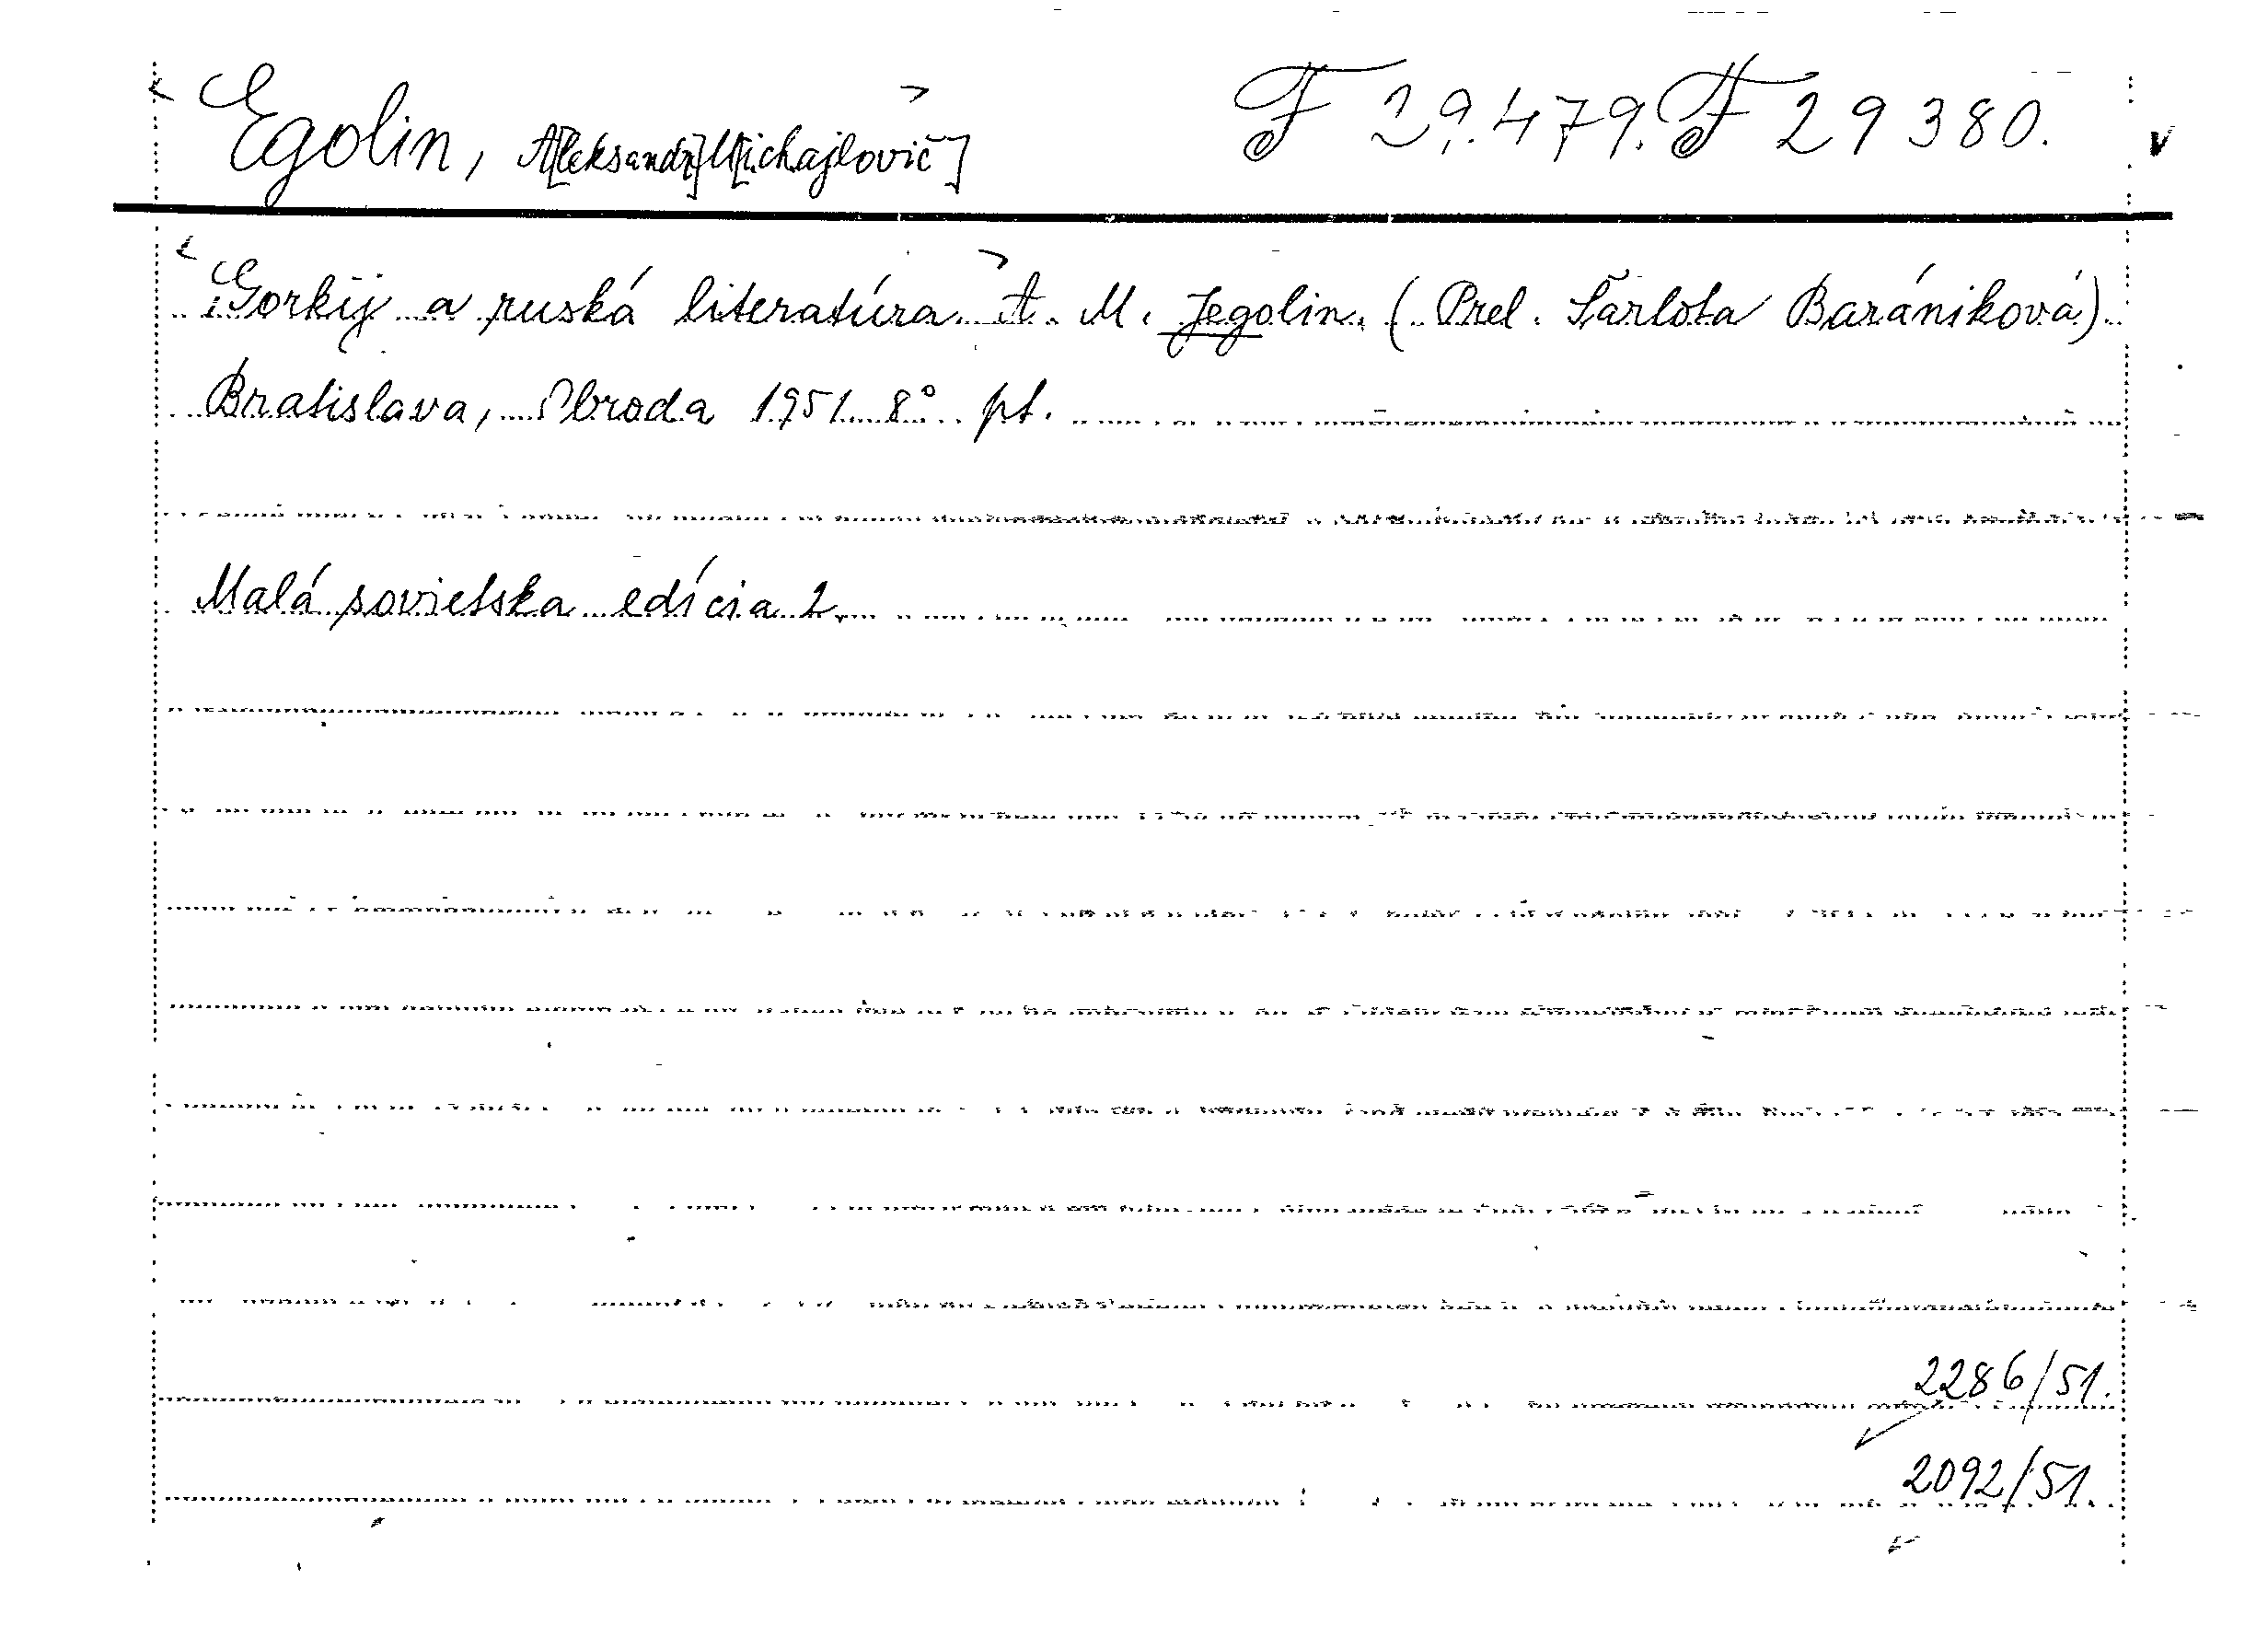 <Egolin, A[leksandr] M[ichajlovič]> F 29.479. F 29380. v
<Gorkij a ruská literatúra.> A. M. Jegolin. (Prel. Šarlota Barániková).
Bratislava, Obroda 1951. 8° pt.
Malá sovietska edícia 2.
2286/51.
2092/51.